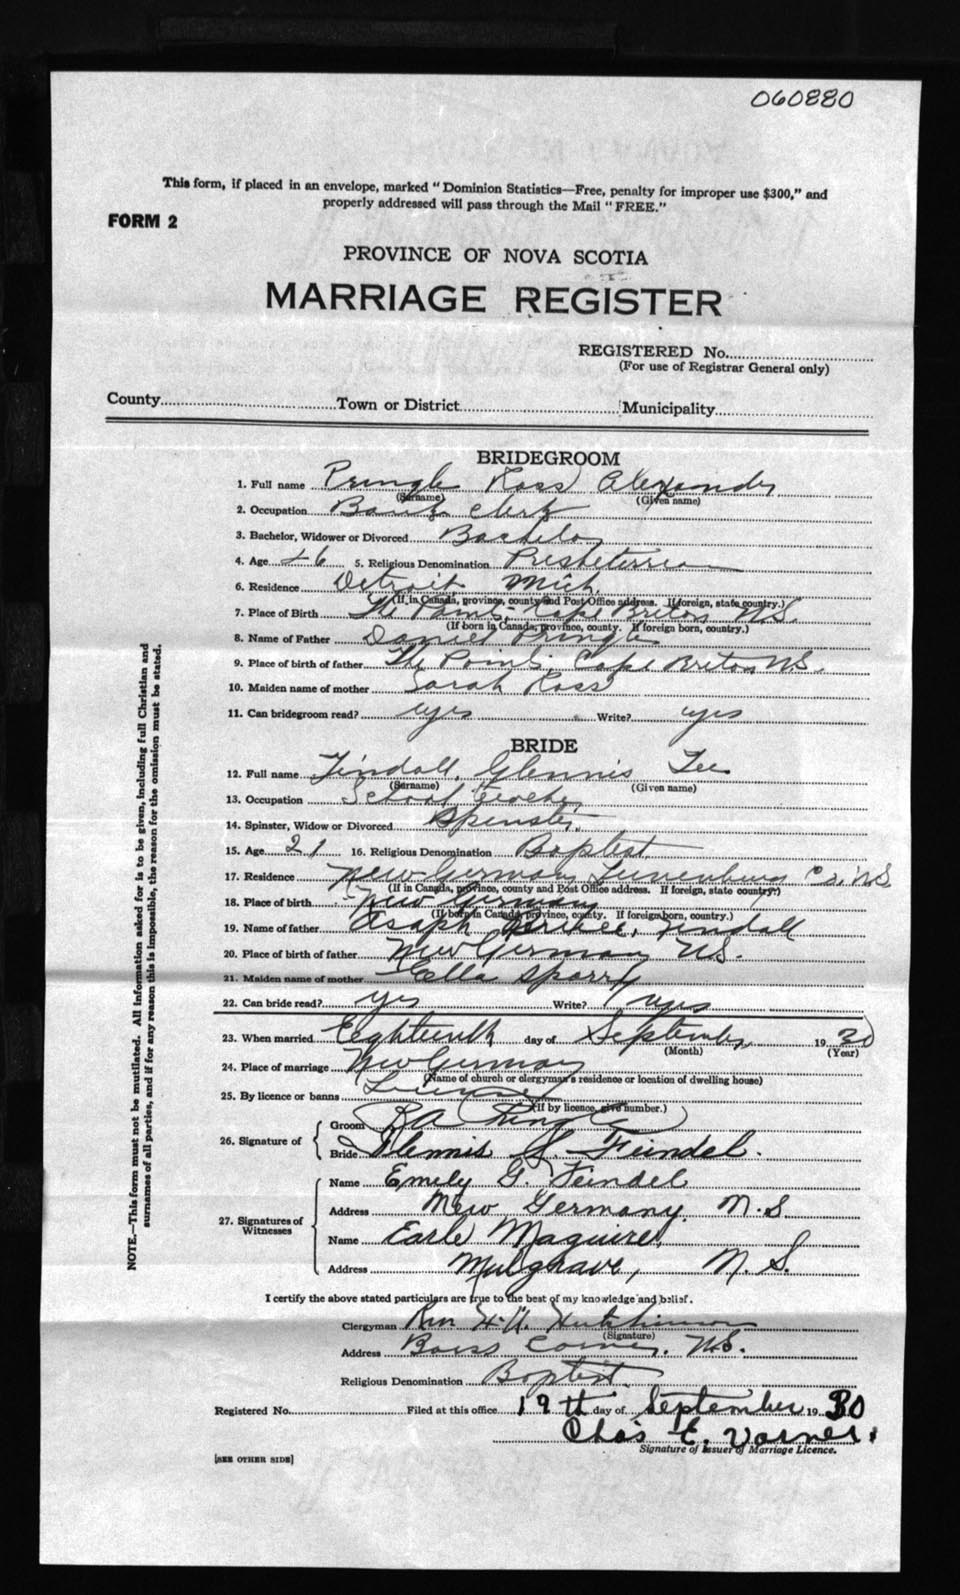 060880
This form, if placed in an envelope, marked "Dominion Statistics—Free, penalty for improper use $300," and
properly addressed will pass through the Mail "FREE."
FORM 2
PROVINCE OF NOVA SCOTIA
MARRIAGE REGISTER
REGISTERED No.
(For use of Registrar General only)
County Town or District Municipality
BRIDEGROOM
1. Full name Pringle Ross Alexander
(Surname) (Given name)
2. Occupation Bank Clerk
3. Bachelor, Widower or Divorced Bachelor
4. Age 26 5. Religious Denomination Presbeterrean
6. Residence Detroit Mich.
(If in Canada, province, county and Post Office address. If foreign, state country.)
7. Place of Birth The Point, Cape Breton N.S.
(If born in Canada, province, county. If foreign born, country.)
8. Name of Father Daniel Pringle
9. Place of birth of father The Point, Cape Breton N.S.
10. Maiden name of mother Sarah Ross
11. Can bridegroom read? yes Write? yes
BRIDE
12. Full name Findall, Glennis Lee
(Surname) (Given name)
13. Occupation School Teacher
14. Spinster, Widow or Divorced Spinster
15. Age 21 16. Religious Denomination Baptist
17. Residence New Germany Lunenburg Co. N.S.
(If in Canada, province, county and Post Office address. If foreign, state country.)
18. Place of birth New Germany
(If born in Canada, province, county. If foreign born, country.)
19. Name of father Asaph Findall
20. Place of birth of father New Germany N.S.
21. Maiden name of mother Ella Sparry
22. Can bride read? yes Write? yes
23. When married Eighteenth day of September 1930
(Month) (Year)
24. Place of marriage New Germany
(Name of church or clergyman's residence or location of dwelling house)
25. By licence or banns License
(If by licence, give number.)
26. Signature of Groom R A Pringle
Bride Glennis L. Feindel.
27. Signatures of Witnesses
Name Emily G. Feindel
Address New Germany, N.S.
Name Earle Maguire,
Address Mulgrave, N.S.
I certify the above stated particulars are true to the best of my knowledge and belief.
Clergyman Rev Hutchinson
(Signature)
Address Barss Corner, N.S.
Religious Denomination Baptist
Registered No. Filed at this office 19th day of September 1930
Chas E. Varner.
Signature of Issuer of Marriage Licence.
[SEE OTHER SIDE]
NOTE.—This form must not be mutilated. All information asked for is to be given, including full Christian and
surnames of all parties, and if for any reason this is impossible, the reason for the omission must be stated.